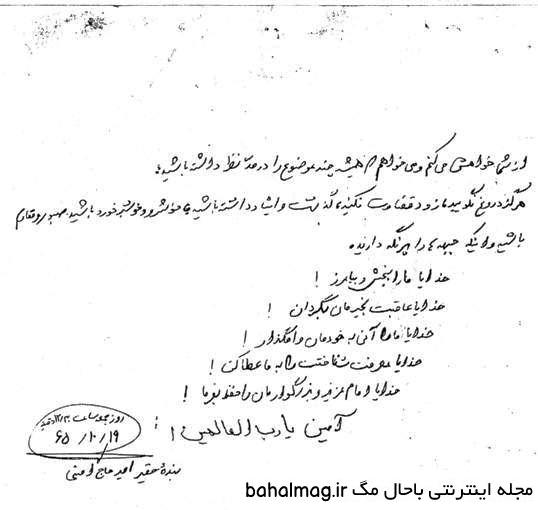 از شما خواهش می‌کنم و می‌خواهم که همیشه چند موضوع را در مد نظر داشته باشید:
هرگز دروغ نگویید، زود قضاوت نکنید، گذشت و ایثار داشته باشید، خوشرو و خوشبرخورد باشید، صبور و مقاوم
باشید و اینکه جبهه‌ها را پر نگه دارید.
خدایا ما را ببخش و بیامرز !
خدایا عاقبت بخیرمان بگردان !
خدایا ما را آنی به خودمان وامگذار !
خدایا معرفت شناختت را به ما عطا کن !
خدایا امام عزیز و بزرگوارمان را حفظ بفرما !
آمین یا رب العالمین !
روز ساعت
۶۵/۱۰/۱۹
بنده حقیر امیر حاج امینی
مجله اینترنتی باحال مگ bahalmag.ir